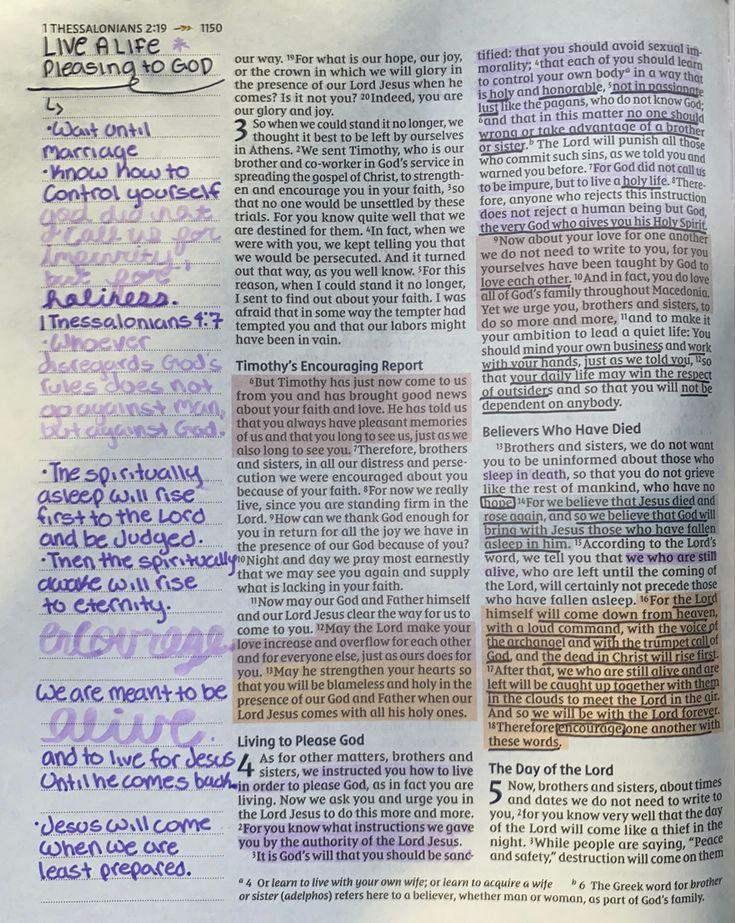 1 THESSALONIANS 2:19 1150
LIVE A LIFE
Pleasing to GOD
•Wait until
marriage
•Know how to
control yourself
god did not
call us for
impurity,
but for
holiness.
1 Thessalonians 4:7
•Whoever
disregards God's
rules does not
go against man,
but against God.
•The spiritually
asleep will rise
first to the Lord
and be Judged.
•Then the spiritually
awake will rise
to eternity.
encourage.
we are meant to be
alive.
and to live for Jesus
until he comes back.
•Jesus will come
when we are
least prepared.
our way. 19For what is our hope, our joy,
or the crown in which we will glory in
the presence of our Lord Jesus when he
comes? Is it not you? 20Indeed, you are
our glory and joy.
3 So when we could stand it no longer, we
thought it best to be left by ourselves
in Athens. 2We sent Timothy, who is our
brother and co-worker in God's service in
spreading the gospel of Christ, to strength-
en and encourage you in your faith, 3so
that no one would be unsettled by these
trials. For you know quite well that we
are destined for them. 4In fact, when we
were with you, we kept telling you that
we would be persecuted. And it turned
out that way, as you well know. 5For this
reason, when I could stand it no longer,
I sent to find out about your faith. I was
afraid that in some way the tempter had
tempted you and that our labors might
have been in vain.
Timothy's Encouraging Report
6But Timothy has just now come to us
from you and has brought good news
about your faith and love. He has told us
that you always have pleasant memories
of us and that you long to see us, just as we
also long to see you. 7Therefore, brothers
and sisters, in all our distress and perse-
cution we were encouraged about you
because of your faith. 8For now we really
live, since you are standing firm in the
Lord. 9How can we thank God enough for
you in return for all the joy we have in
the presence of our God because of you?
10Night and day we pray most earnestly
that we may see you again and supply
what is lacking in your faith.
11Now may our God and Father himself
and our Lord Jesus clear the way for us to
come to you. 12May the Lord make your
love increase and overflow for each other
and for everyone else, just as ours does for
you. 13May he strengthen your hearts so
that you will be blameless and holy in the
presence of our God and Father when our
Lord Jesus comes with all his holy ones.
Living to Please God
4 As for other matters, brothers and
sisters, we instructed you how to live
in order to please God, as in fact you are
living. Now we ask you and urge you in
the Lord Jesus to do this more and more.
2For you know what instructions we gave
you by the authority of the Lord Jesus.
3It is God's will that you should be sanc-
tified: that you should avoid sexual im-
morality; 4that each of you should learn
to control your own body a in a way that
is holy and honorable, 5not in passionate
lust like the pagans, who do not know God;
6and that in this matter no one should
wrong or take advantage of a brother
or sister. b The Lord will punish all those
who commit such sins, as we told you and
warned you before. 7For God did not call us
to be impure, but to live a holy life. 8There-
fore, anyone who rejects this instruction
does not reject a human being but God,
the very God who gives you his Holy Spirit.
9Now about your love for one another
we do not need to write to you, for you
yourselves have been taught by God to
love each other. 10And in fact, you do love
all of God's family throughout Macedonia.
Yet we urge you, brothers and sisters, to
do so more and more, 11and to make it
your ambition to lead a quiet life: You
should mind your own business and work
with your hands, just as we told you, 12so
that your daily life may win the respect
of outsiders and so that you will not be
dependent on anybody.
Believers Who Have Died
13Brothers and sisters, we do not want
you to be uninformed about those who
sleep in death, so that you do not grieve
like the rest of mankind, who have no
hope. 14For we believe that Jesus died and
rose again, and so we believe that God will
bring with Jesus those who have fallen
asleep in him. 15According to the Lord's
word, we tell you that we who are still
alive, who are left until the coming of
the Lord, will certainly not precede those
who have fallen asleep. 16For the Lord
himself will come down from heaven,
with a loud command, with the voice of
the archangel and with the trumpet call of
God, and the dead in Christ will rise first.
17After that, we who are still alive and are
left will be caught up together with them
in the clouds to meet the Lord in the air.
And so we will be with the Lord forever.
18Therefore encourage one another with
these words.
The Day of the Lord
5 Now, brothers and sisters, about times
and dates we do not need to write to
you, 2for you know very well that the day
of the Lord will come like a thief in the
night. 3While people are saying, "Peace
and safety," destruction will come on them
a 4 Or learn to live with your own wife; or learn to acquire a wife b 6 The Greek word for brother
or sister (adelphos) refers here to a believer, whether man or woman, as part of God's family.